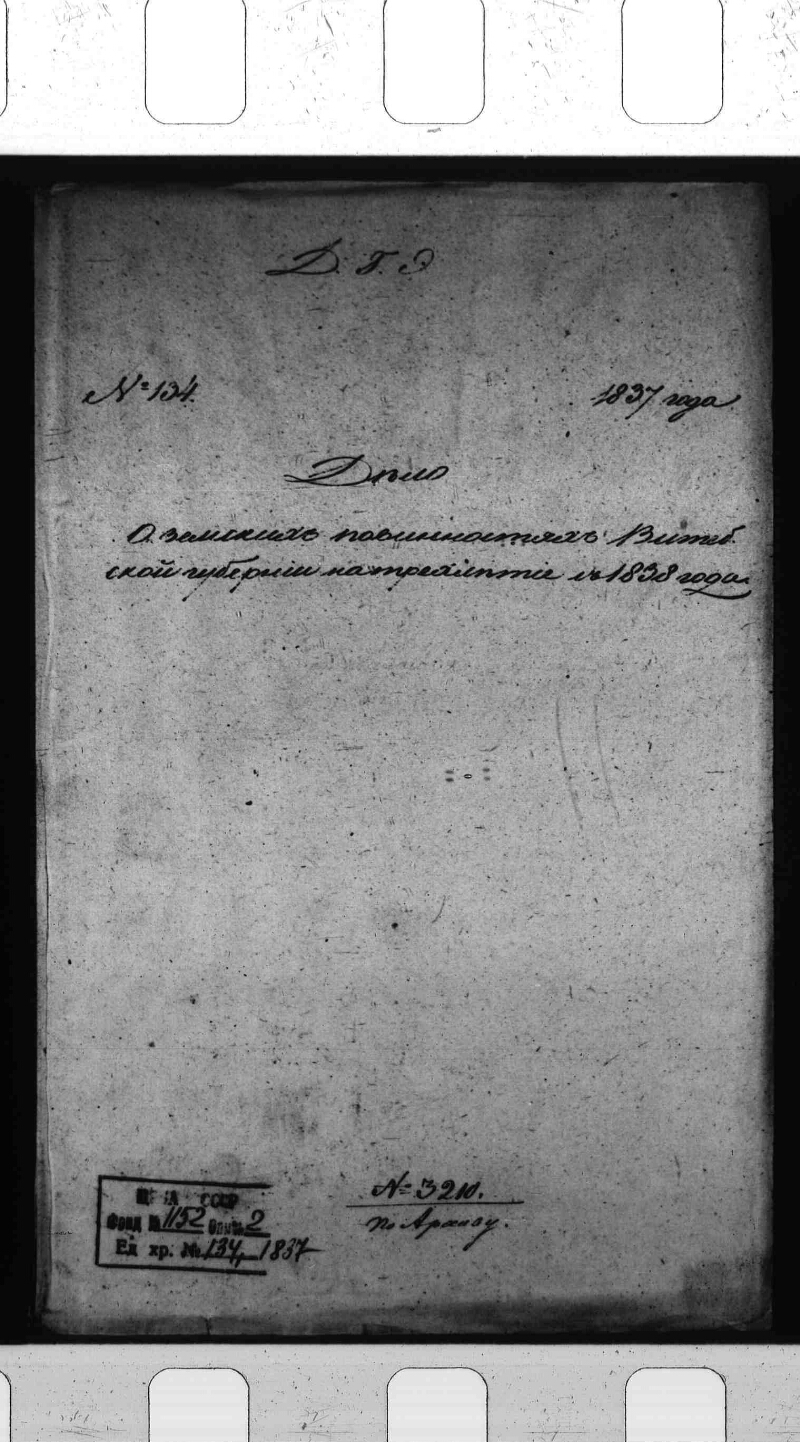 Д. Г. Э
№ 134.
1837 года
Дѣло
О земскихъ повинностяхъ Витеб
ской губерніи на трехлѣтіе съ 1838 года.
№ 3210.
по Архиву.
СССР
Фонд № 1152 Опись 2
Ед хр. № 134, 1837